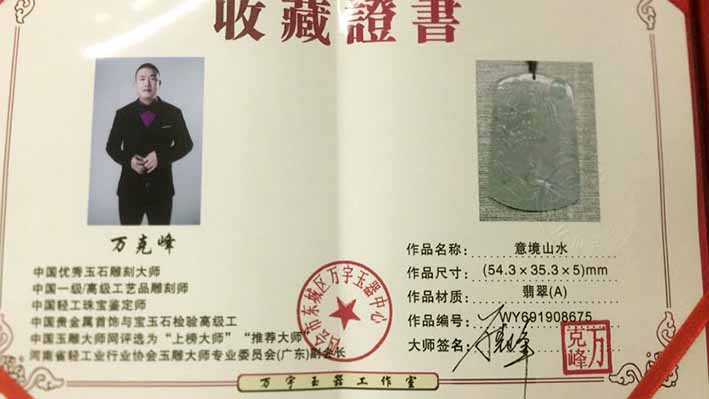 收藏證書
万克峰
中国优秀玉石雕刻大师
中国一级/高级工艺品雕刻师
中国轻工珠宝鉴定师
中国贵金属首饰与宝玉石检验高级工
中国玉雕大师网评选为“上榜大师”“推荐大师
河南省轻工业行业协会玉雕大师专业委员会(广东)副会长
会市东城区万字玉器中心
作品名称: 意境山水
作品尺寸: (54.3×35.3×5)mm
作品材质: 翡翠(A)
作品编号: WY691908675
大师签名: 万克峰
万克峰
万字玉器工作室